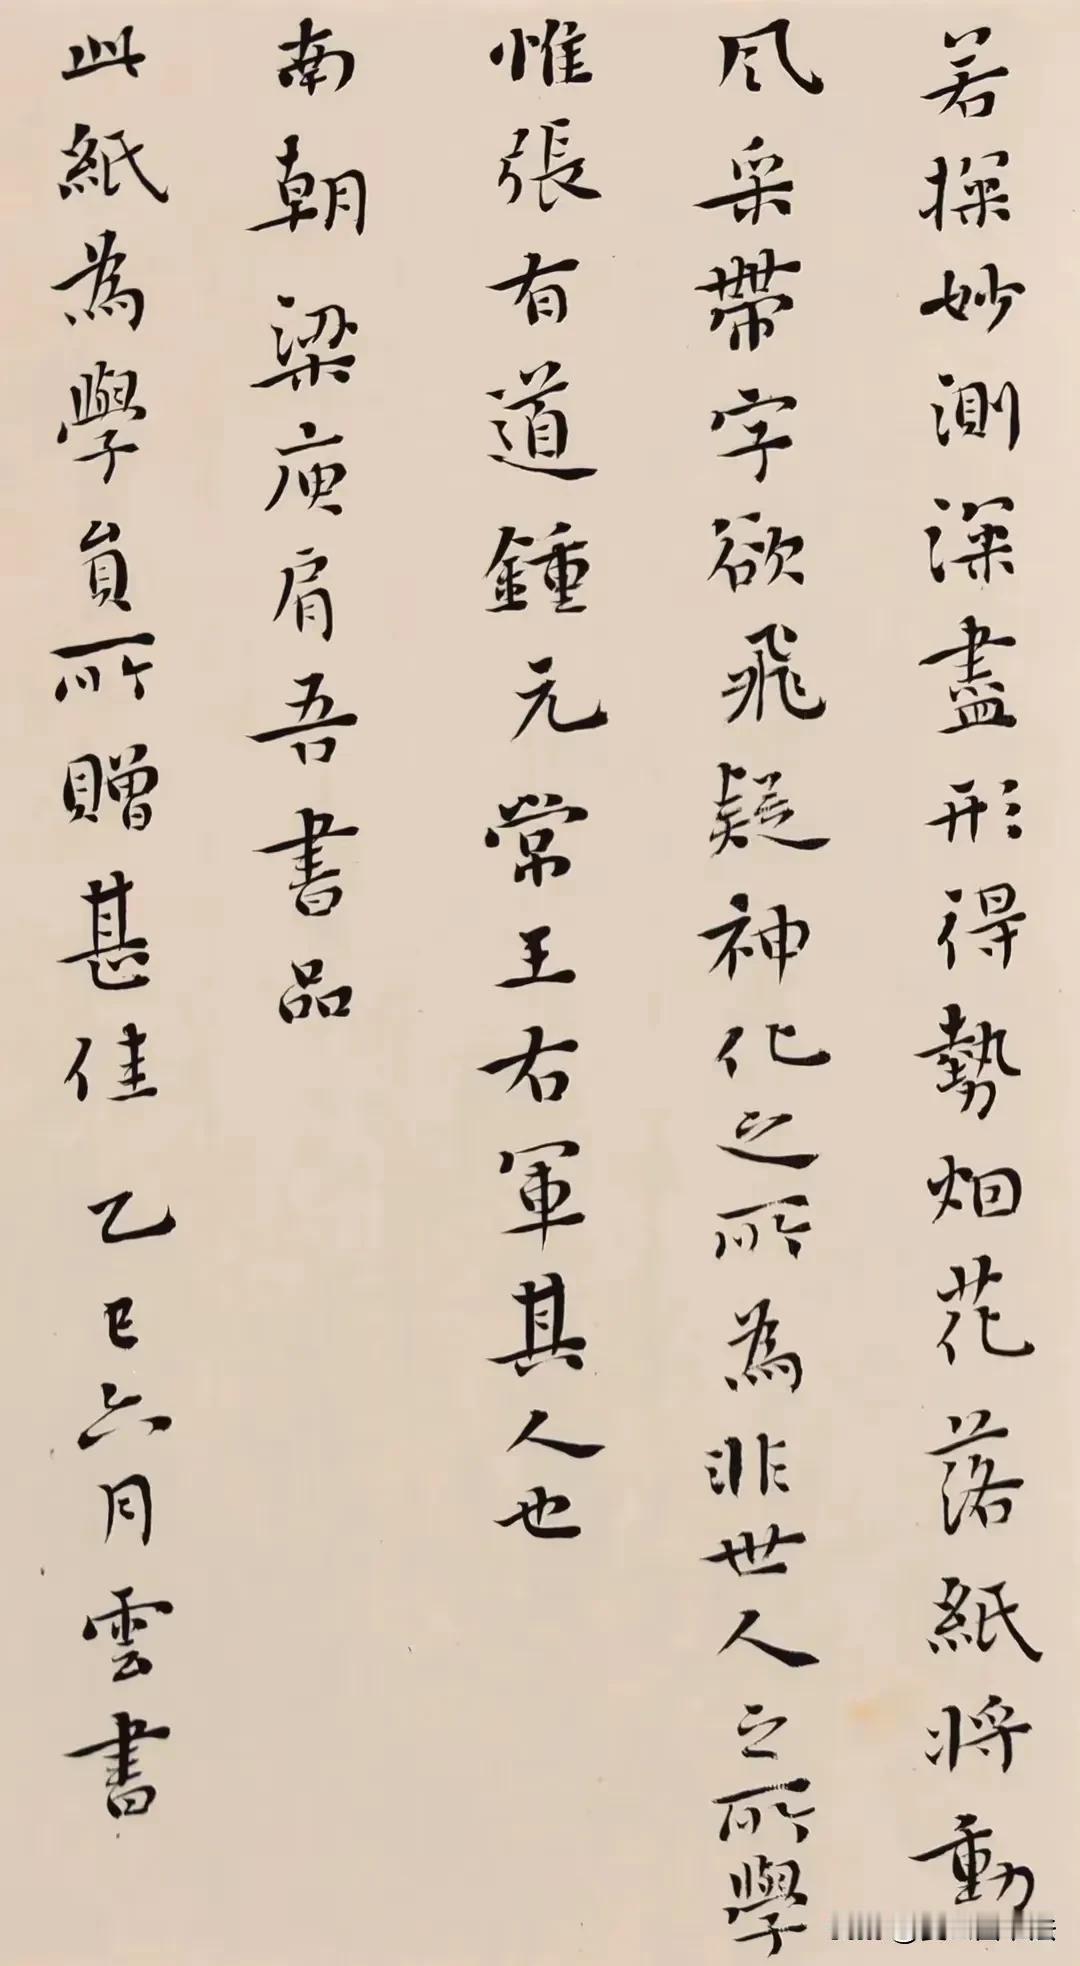 若探妙測深盡形得勢烟花落紙將動
風采帶字欲飛疑神化之所為非世人之所學
惟張有道鍾元常王右軍其人也
南朝梁庾肩吾書品
此紙為學員所贈甚佳 乙巳六月雲書